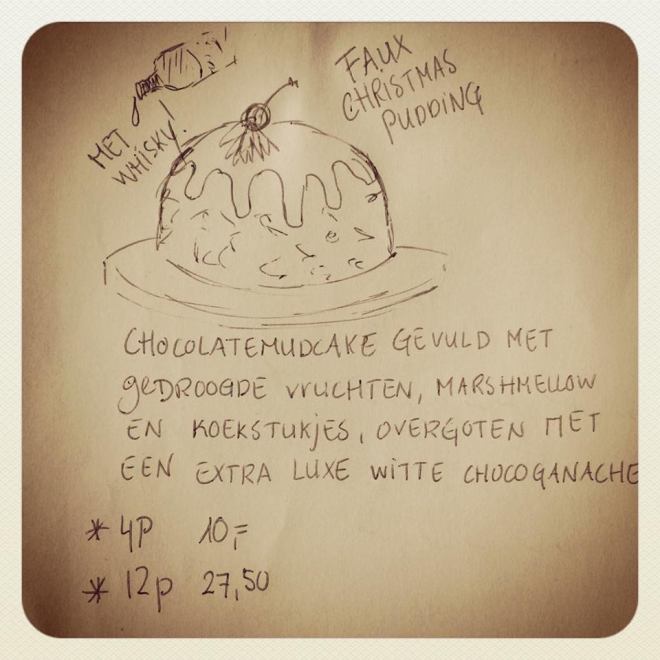 FAUX
CHRISTMAS
PUDDING
MET
WHISKY.
CHOCOLATEMUDCAKE GEVULD MET
GEDROOGDE VRUCHTEN, MARSHMELLOW
EN KOEKSTUKJES, OVERGOTEN MET
EEN EXTRA LUXE WITTE CHOCOGANACHE
* 4P 10,=
* 12p 27,50